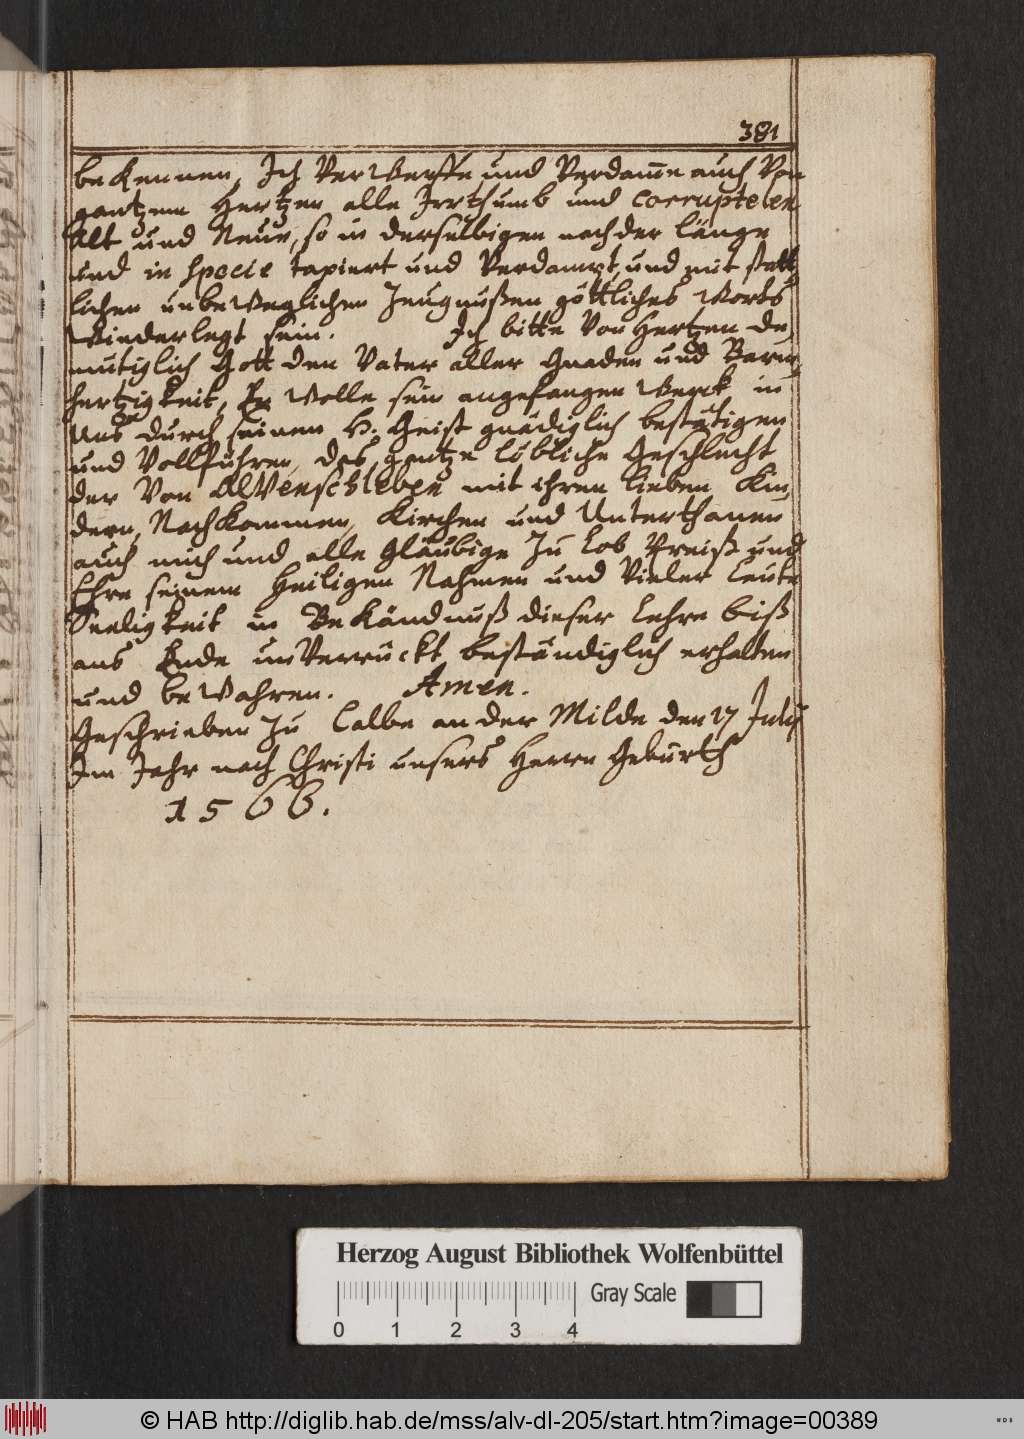 381
bekennen, Ich Verwerffe und Verdam̅e auch Von
gantzem Hertzen alle Irrthumb und corruptelen
Alt und Neue, so in derselbigen nach der länge
und in specie tapiert und Verdampt, und mit statt,
lichen unbeweglichen Zeugnußen göttliches Worts
Wiederlegt sein. Ich bitte Von Hertzen De,
mütiglich Gott den Vater aller Gnaden und Barm,
hertzigkeit, Er Wolle sein angefangen Werck in
Uns durch seinen H. Geist gnädiglich bestätigen
und Vollführen, das gantze löbliche Geschlecht
der Von Alvenschleben mit ihren lieben Kin,
dern, Nachkommen, Kirchen und Unterthanen
auch mich und alle Gläubige zu Lob Preiß und
Ehre seinem Heiligen Nahmen und Vieler Leute
Seeligkeit in Bekändnuß dieser Lehre biß
ans Ende unVerrückt beständiglich erhalten
und bewahren. Amen.
Geschrieben zu Calbe an der Milde den 17 Julij
Im Jahr nach Christi unsers Herrn Geburth
1566.
Herzog August Bibliothek Wolfenbüttel
Gray Scale
0 1 2 3 4
© HAB http://diglib.hab.de/mss/alv-dl-205/start.htm?image=00389